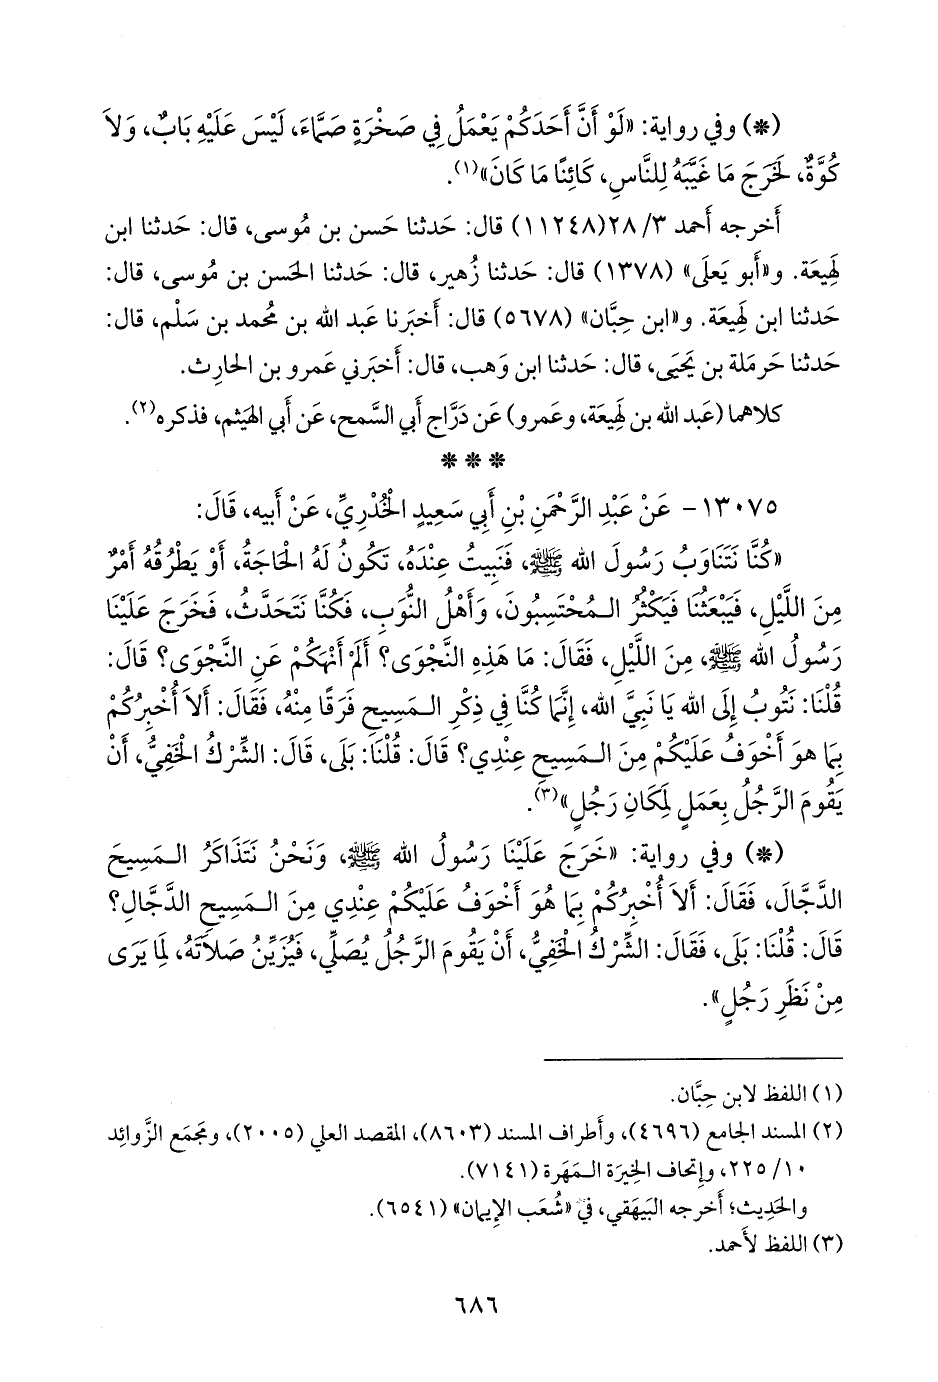 (*) وفي رواية: «لَوْ أَنَّ أَحَدَكُمْ يَعْمَلُ فِي صَخْرَةٍ صَمَّاءَ، لَيْسَ عَلَيْهِ بَابٌ، وَلاَ
كُوَّةٌ، لَخَرَجَ مَا غَيَّبَهُ لِلنَّاسِ، كَائِنًا مَا كَانَ»(١).
أَخرجه أَحمد ٣/ ٢٨(١١٢٤٨) قال: حَدثنا حَسن بن مُوسى، قال: حَدثنا ابن
لَهِيعَة. و«أَبو يَعلَى» (١٣٧٨) قال: حَدثنا زُهير، قال: حَدثنا الحَسن بن مُوسى، قال:
حَدثنا ابن لَهِيعَة. و«ابن حِبَّان» (٥٦٧٨) قال: أَخبَرنا عَبد الله بن مُحمد بن سَلْم، قال:
حَدثنا حَرملة بن يَحيَى، قال: حَدثنا ابن وَهب، قال: أَخبَرني عَمرو بن الحَارِث.
كلاهما (عَبد الله بن لَهِيعَة، وعَمرو) عَن دَرَّاج أَبي السَّمح، عَن أَبي الهَيثم، فذكره(٢).
* * *
١٣٠٧٥ - عَنْ عَبْدِ الرَّحْمَنِ بْنِ أَبِي سَعِيدٍ الْخُدْرِيِّ، عَنْ أَبيه، قَالَ:
«كُنَّا نَتَنَاوَبُ رَسُولَ الله ﷺ، فَنَبِيتُ عِنْدَهُ، تَكُونُ لَهُ الْحَاجَةُ، أَوْ يَطْرُقُهُ أَمْرٌ
مِنَ اللَّيْلِ، فَيَبْعَثُنَا فَيَكْثُرُ الـمُحْتَسِبُونَ، وَأَهْلُ النُّوَبِ، فَكُنَّا نَتَحَدَّثُ، فَخَرَجَ عَلَيْنَا
رَسُولُ الله ﷺ، مِنَ اللَّيْلِ، فَقَالَ: مَا هَذِهِ النَّجْوَى؟ أَلَمْ أَنْهَكُمْ عَنِ النَّجْوَى؟ قَالَ:
قُلْنَا: نَتُوبُ إِلَى الله يَا نَبِيَّ الله، إِنَّمَا كُنَّا فِي ذِكْرِ الـمَسِيحِ فَرَقًا مِنْهُ، فَقَالَ: أَلاَ أُخْبِرُكُمْ
بِمَا هوَ أَخْوَفُ عَلَيْكُمْ مِنَ الـمَسِيحِ عِنْدِي؟ قَالَ: قُلْنَا: بَلَى، قَالَ: الشِّرْكُ الْخَفِيُّ، أَنْ
يَقُومَ الرَّجُلُ بِعَمَلٍ لِمَكَانِ رَجُلٍ»(٣).
(*) وفي رواية: «خَرَجَ عَلَيْنَا رَسُولُ الله ﷺ، وَنَحْنُ نَتَذَاكَرُ الـمَسِيحَ
الدَّجَّالَ، فَقَالَ: أَلاَ أُخْبِرُكُمْ بِمَا هُوَ أَخْوَفُ عَلَيْكُمْ عِنْدِي مِنَ الـمَسِيحِ الدَّجَّالِ؟
قَالَ: قُلْنَا: بَلَى، فَقَالَ: الشِّرْكُ الْخَفِيُّ، أَنْ يَقُومَ الرَّجُلُ يُصَلِّي، فَيُزَيِّنُ صَلاَتَهُ، لِمَا يَرَى
مِنْ نَظَرِ رَجُلٍ».
(١) اللفظ لابن حِبَّان.
(٢) المسند الجامع (٤٦٩٦)، وأَطراف المسند (٨٦٠٣)، المقصد العلي (٢٠٠٥)، ومَجمَع الزَّوائِد
١٠/ ٢٢٥، وإِتحاف الخِيرَة الـمَهَرة (٧١٤١).
والحَدِيث؛ أَخرجه البَيهَقي، في «شُعَب الإِيمان» (٦٥٤١).
(٣) اللفظ لأَحمد.
٦٨٦